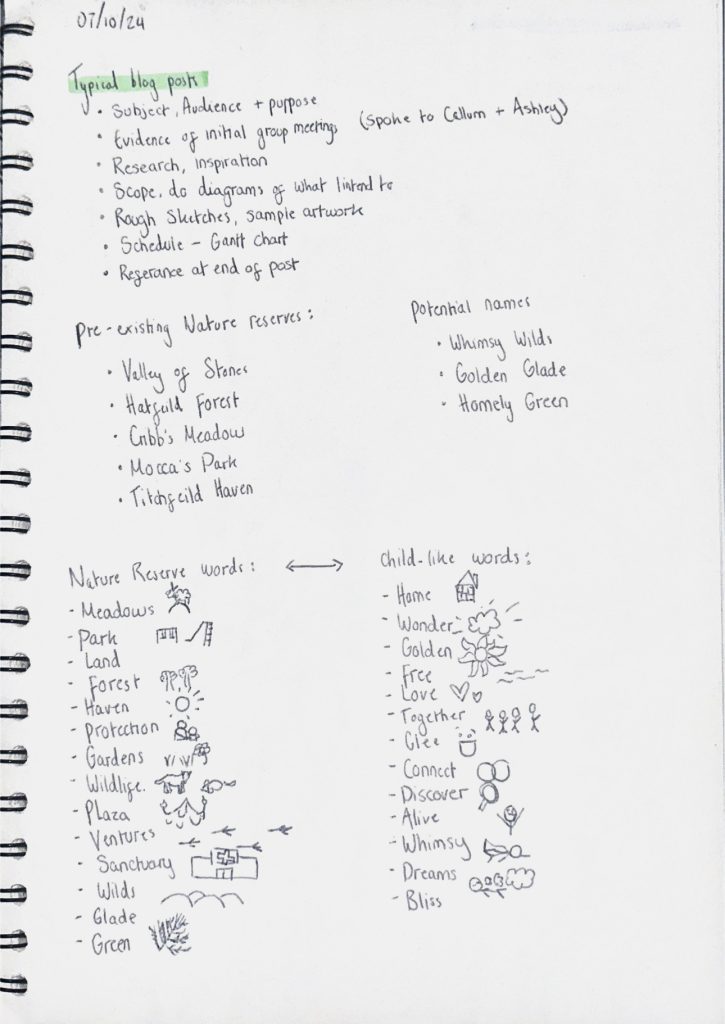 07/10/24
Typical blog post
• Subject, Audience + purpose
• Evidence of initial group meetings (Spoke to Callum + Ashley)
• Research, inspiration
• Scope, do diagrams of what I intend to
• Rough Sketches, sample artwork
• Schedule - Gantt chart
• Referance at end of post
Pre-existing Nature reserves:
• Valley of Stones
• Hatfeild Forest
• Cribb's Meadow
• Mocca's Park
• Titchfeild Haven
Potential names
• Whimsy Wilds
• Golden Glade
• Homely Green
Nature Reserve words: ↔
- Meadows
- Park
- Land
- Forest
- Haven
- Protection
- Gardens
- Wildlife.
- Plaza
- Ventures
- Sanctuary
- Wilds
- Glade
- Green
Child-like words:
- Home
- Wonder
- Golden
- Free
- Love
- Together
- Glee
- Connect
- Discover
- Alive
- Whimsy
- Dreams
- Bliss